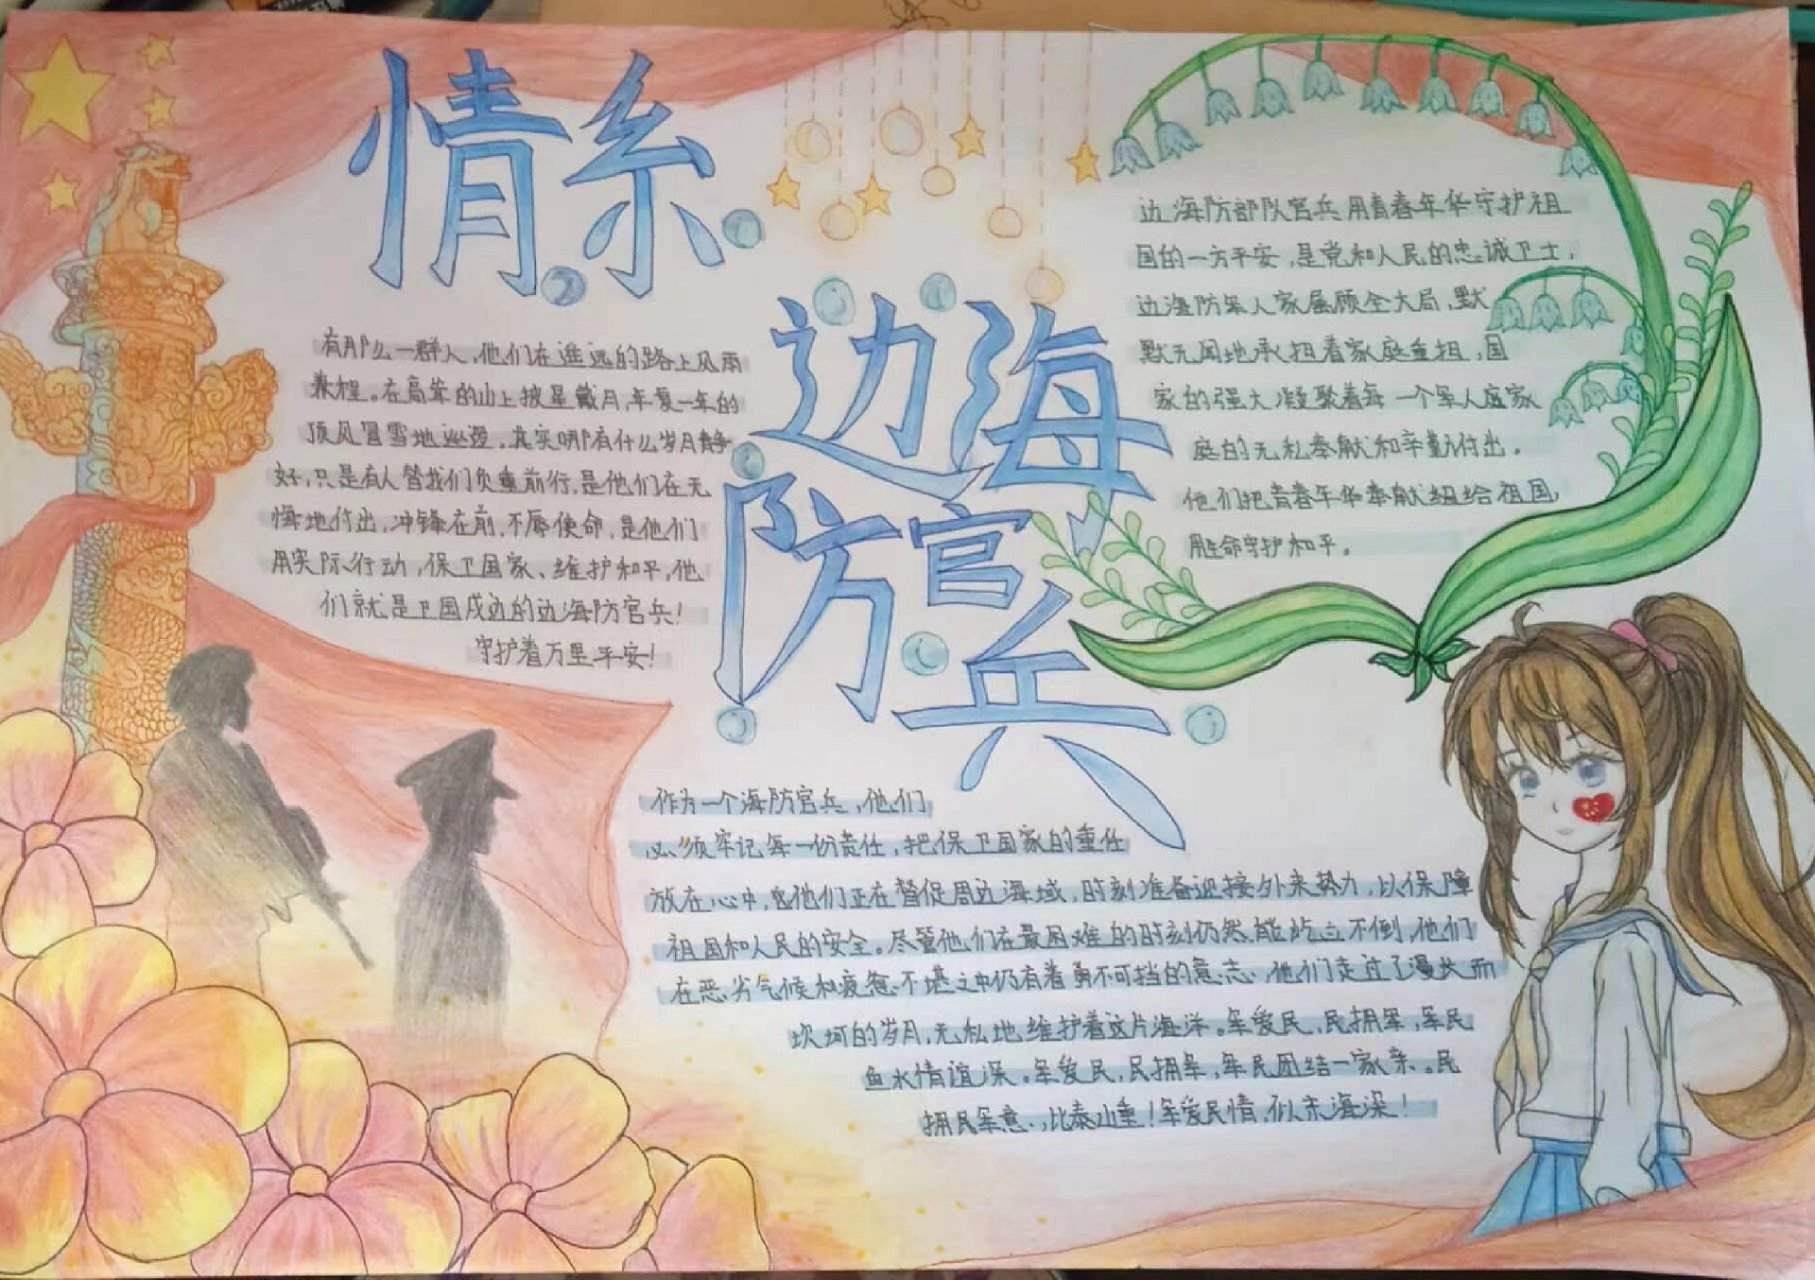 情系
边海
防官兵
有那么一群人,他们在遥远的路上风雨
兼程。在高耸的山上披星戴月,年复一年的
顶风冒雪地巡逻。其实哪有什么岁月静
好,只是有人替我们负重前行,是他们在无
悔地付出,冲锋在前,不辱使命,是他们
用实际行动,保卫国家、维护和平,他
们就是卫国戍边的边海防官兵!
守护着万里平安!
边海防部队官兵用青春年华守护祖
国的一方平安,是党和人民的忠诚卫士,
边海防军人家属顾全大局,默
默无闻地承担着家庭重担,国
家的强大凝聚着每一个军人庭家
庭的无私奉献和辛勤付出。
他们把青春年华奉献给祖国,
用生命守护和平。
作为一个海防官兵,他们
必须牢记每一份责任,把保卫国家的重任
放在心中,他们正在督促周边海域,时刻准备迎接外来势力,以保障
祖国和人民的安全。尽管他们在最困难的时刻仍然能屹立不倒,他们
在恶劣气候和疲惫不堪之中仍有着勇不可挡的意志,他们走过了漫长而
坎坷的岁月,无私地维护着这片海洋。军爱民,民拥军,军民
鱼水情谊深。军爱民,民拥军,军民团结一家亲。民
拥民军意,比泰山重!军爱民情,似东海深!